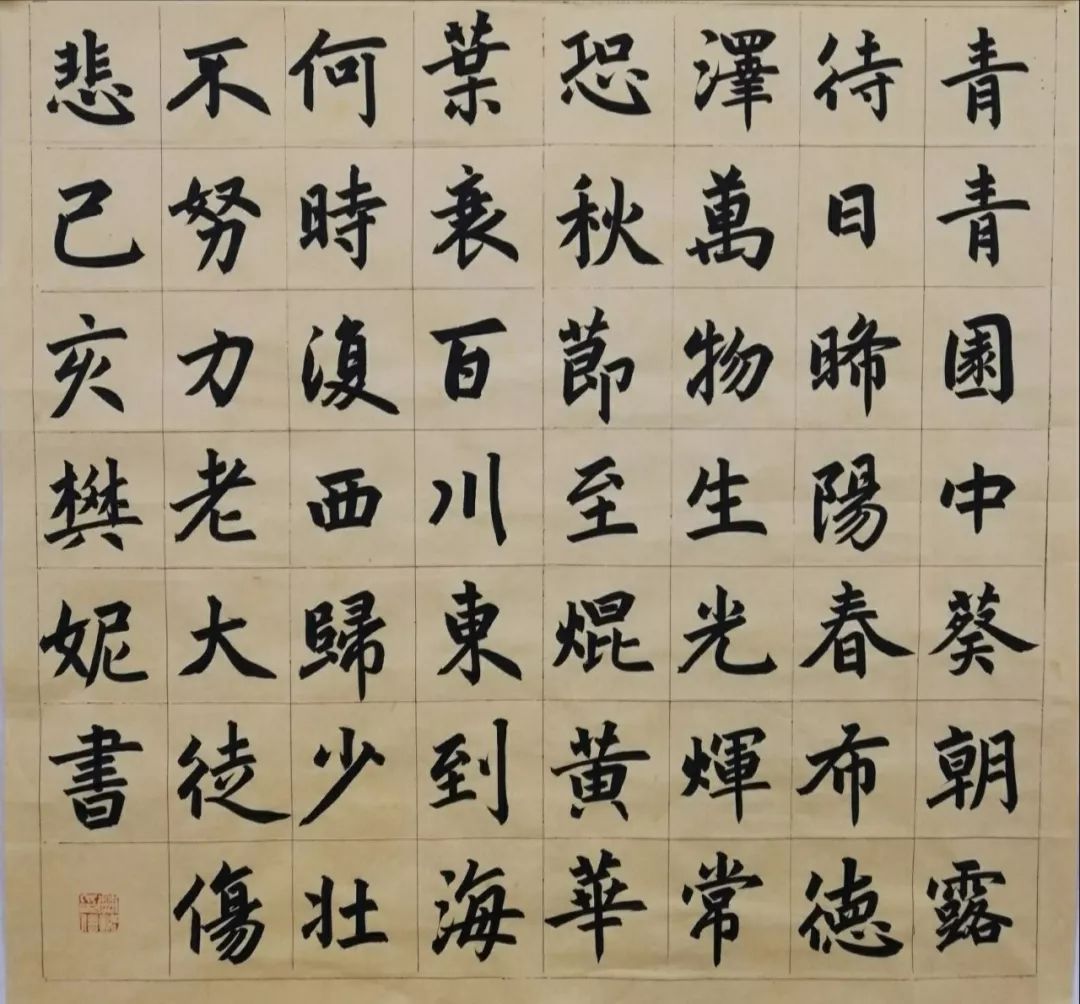 青青園中葵朝露
待日晞陽春布德
澤萬物生光輝常
恐秋節至焜黃華
葉衰百川東到海
何時復西歸少壯
不努力老大徒傷
悲己亥樊妮書